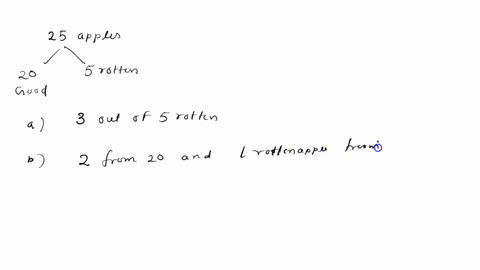 25 apples
20 5 rotten
Good
a) 3 out of 5 rotten
b) 2 from 20 and 1 rotten apple from